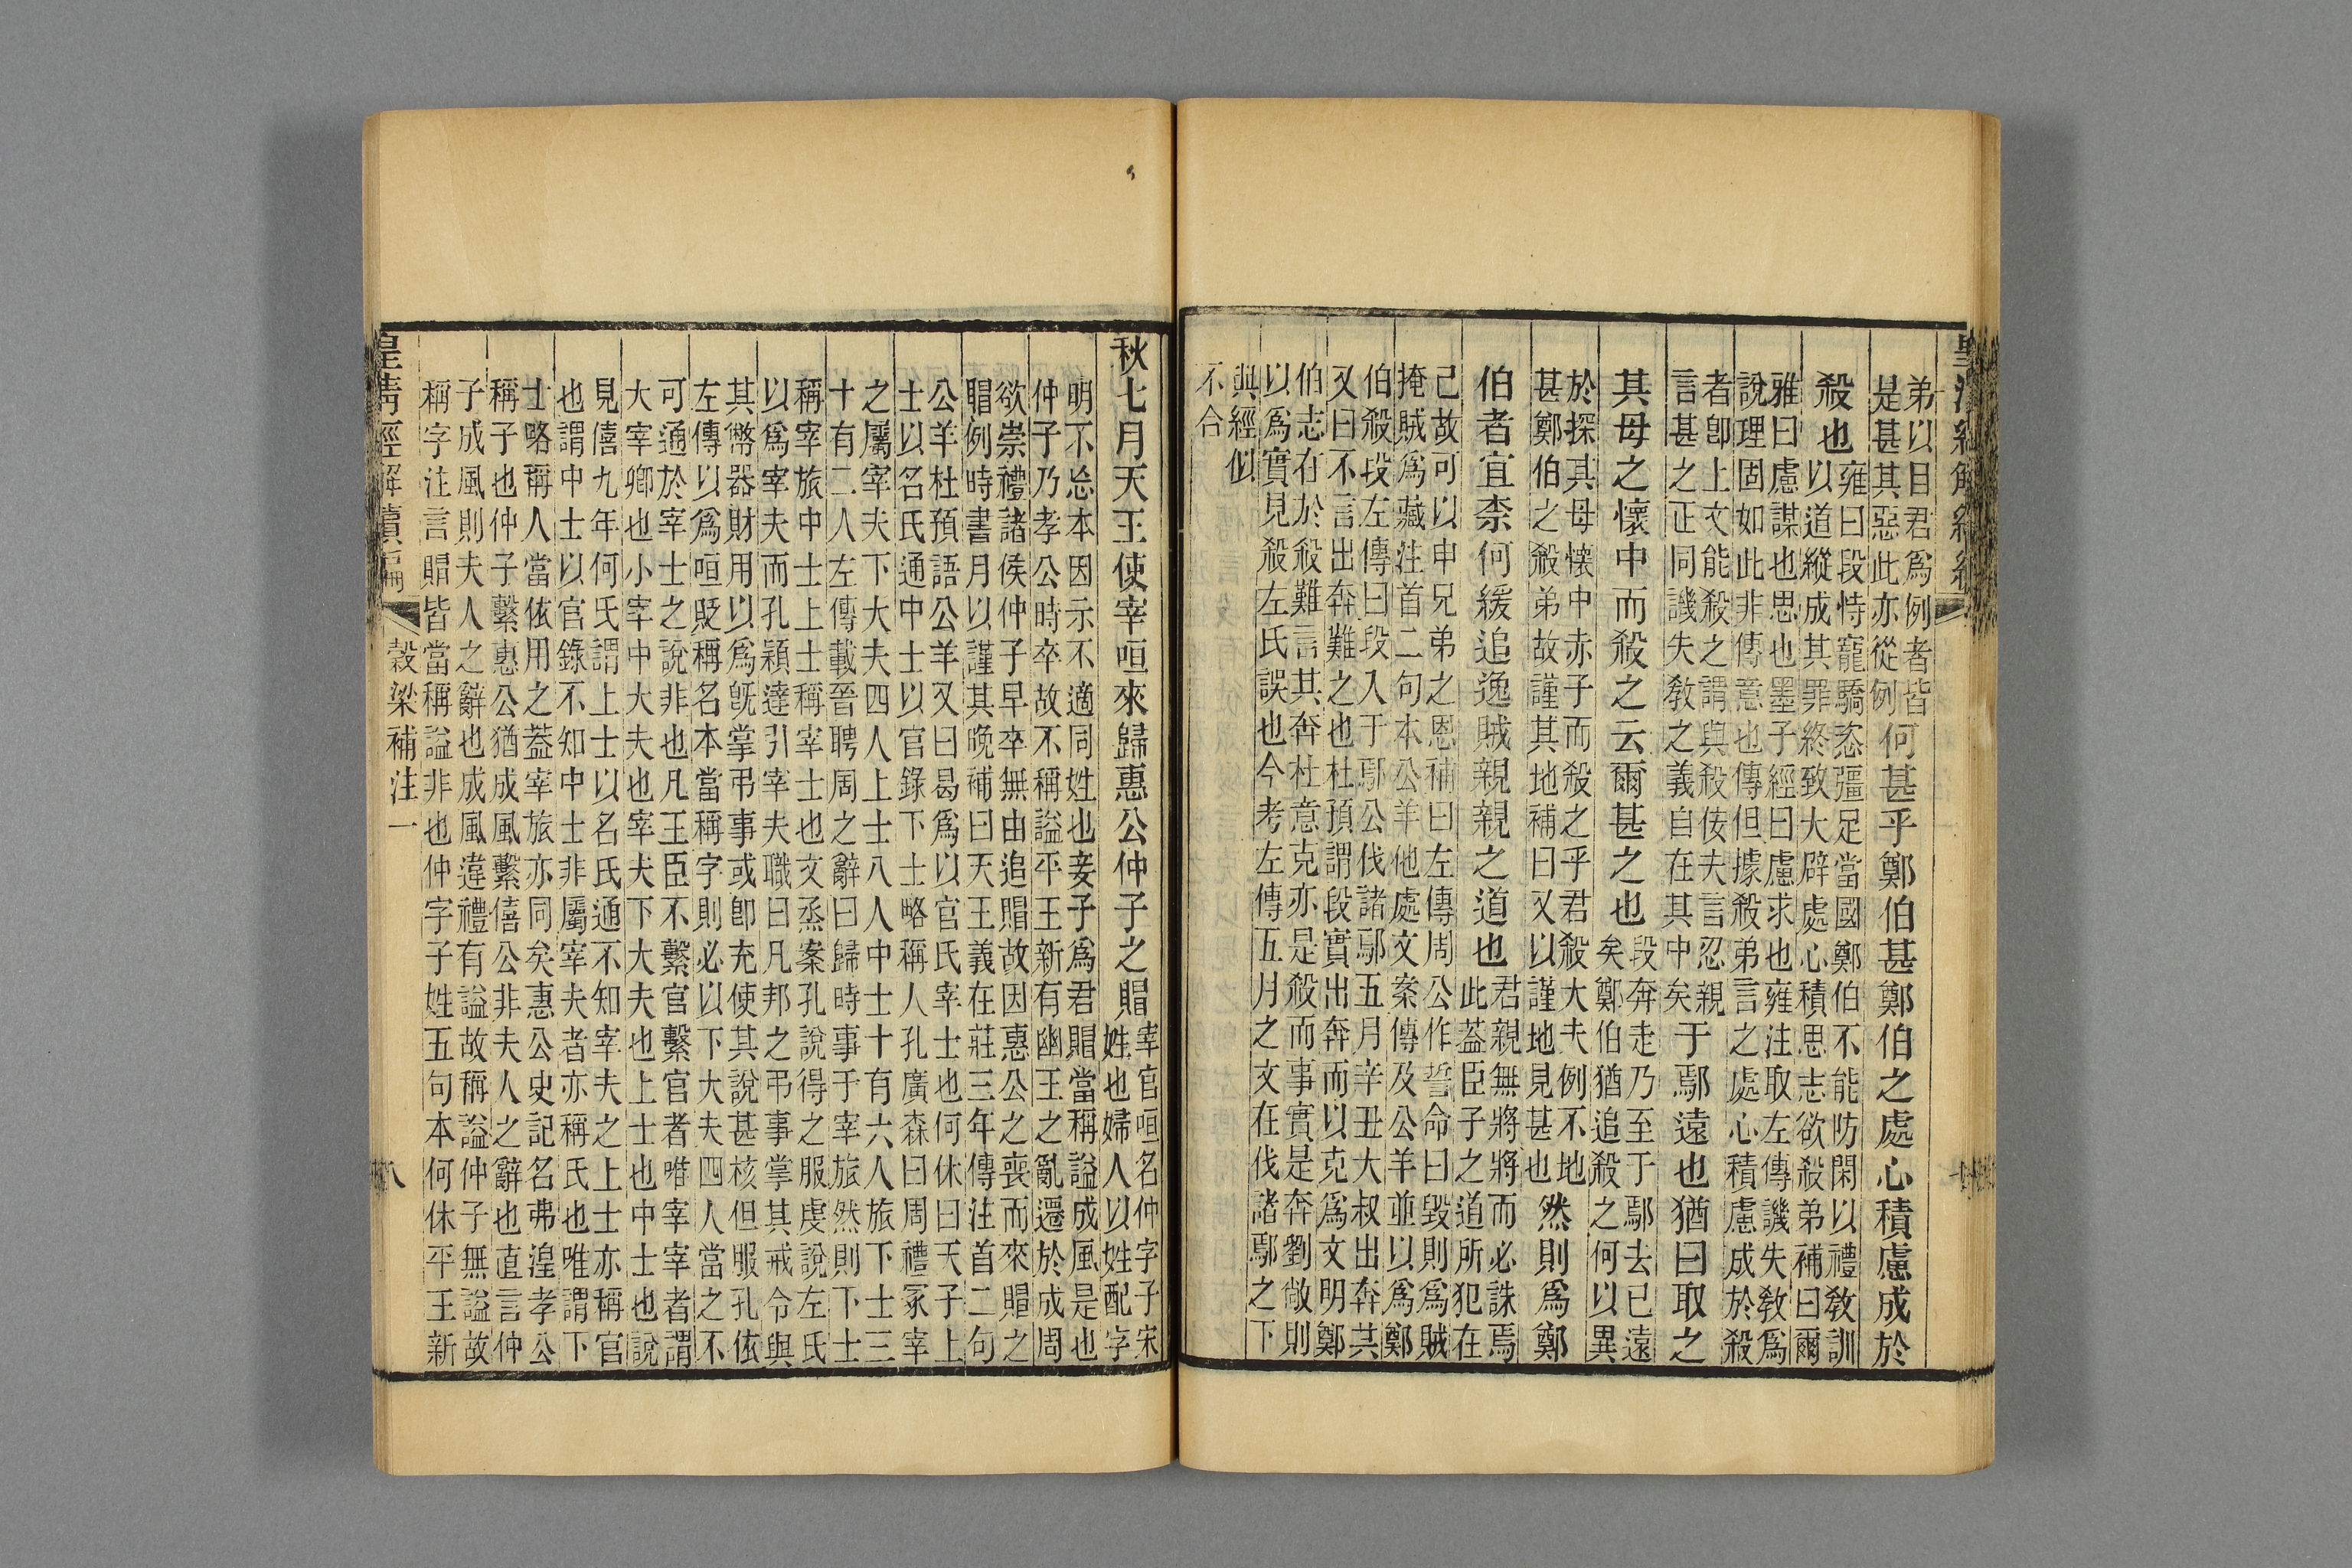 弟以目君爲例者皆
是甚其惡此亦從例
何甚乎鄭伯甚鄭伯之處心積慮成於
殺也
雍曰段恃寵驕恣彊足當國鄭伯不能防閑以禮敎訓
以道縱成其罪終致大辟處心積思志欲殺弟補曰爾
雅曰慮謀也思也墨子經曰慮求也雍注取左傳譏失敎爲
說理固如此非傳意也傳但據殺弟言之處心積慮成於殺
者卽上文能殺之謂與殺佞夫言忍親
言甚之正同譏失敎之義自在其中矣
于鄢遠也猶曰取之
其母之懷中而殺之云爾甚之也
段奔走乃至于鄢去已遠
矣鄭伯猶追殺之何以異
於探其母懷中赤子而殺之乎君殺大夫例不地
甚鄭伯之殺弟故謹其地補曰又以謹地見甚也
然則爲鄭
伯者宜柰何緩追逸賊親親之道也
君親無將將而必誅焉
此蓋臣子之道所犯在
己故可以申兄弟之恩補曰左傳周公作誓命曰毀則爲賊
掩賊爲藏注首二句本公羊他處文案傳及公羊並以爲鄭
伯殺段左傳曰段入于鄢公伐諸鄢五月辛丑大叔出奔共
又曰不言出奔難之也杜預謂段實出奔而以克爲文明鄭
伯志在於殺難言其奔杜意克亦是殺而事實是奔劉敞則
以爲實見殺左氏誤也今考左傳五月之文在伐諸鄢之下
與經似
不合
秋七月天王使宰咺來歸惠公仲子之賵
宰官咺名仲字子宋
姓也婦人以姓配字
明不忘本因示不適同姓也妾子爲君賵當稱謚成風是也
仲子乃孝公時卒故不稱謚平王新有幽王之亂遷於成周
欲崇禮諸侯仲子早卒無由追賵故因惠公之喪而來賵之
賵例時書月以謹其晚補曰天王義在莊三年傳注首二句
公羊杜預語公羊又曰曷爲以官氏宰士也何休曰天子上
士以名氏通中士以官錄下士略稱人孔廣森曰周禮冢宰
之屬宰夫下大夫四人上士八人中士十有六人旅下士三
十有二人左傳載晉聘周之辭曰歸時事于宰旅然則下士
稱宰旅中士上士稱宰士也文烝案孔說得之服虔說左氏
以爲宰夫而孔穎達引宰夫職曰凡邦之弔事掌其戒令與
其幣器財用以爲旣掌弔事或卽充使其說甚核但服孔依
左傳以爲咺貶稱名本當稱字則必以下大夫四人當之不
可通於宰士之說非也凡王臣不繫官繫官者唯宰宰者謂
大宰卿也小宰中大夫也宰夫下大夫也上士也中士也說
見僖九年何氏謂上士以名氏通不知宰夫之上士亦稱官
也謂中士以官錄不知中士非屬宰夫者亦稱氏也唯謂下
士略稱人當依用之蓋宰旅亦同矣惠公史記名弗湟孝公
稱子也仲子繫惠公猶成風繫僖公非夫人之辭也直言仲
子成風則夫人之辭也成風違禮有謚故稱謚仲子無謚故
稱字注言賵皆當稱謚非也仲字子姓五句本何休平王新
皇清經解續編
穀梁補注一
八